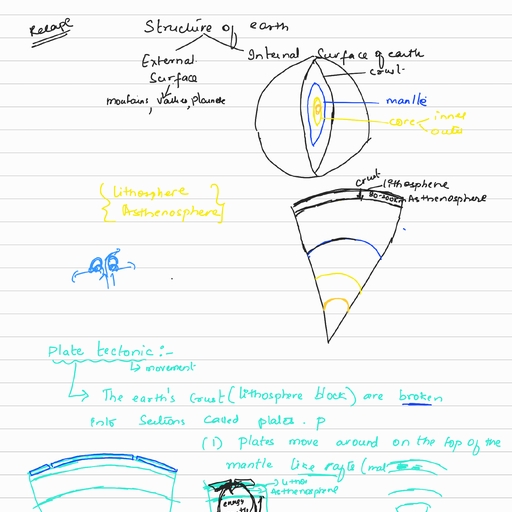 Recape
Structure of earth
External
Surface
Internal
Surface of earth
crust
mantle
core
inner
outer
crust
lithosphere
Asthenosphere
Lithosphere
Asthenosphere
Plate tectonic :-
movement
The earth's Crust (lithosphere block) are broken
into Sections called plates. P
(1) Plates move around on the top of the
mantle like rafts (
Litho
Asthenosphere